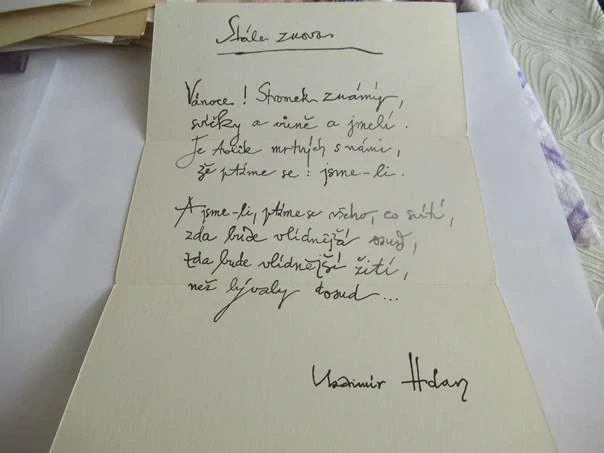 Stále znovu
Vánoce! Stromek známý,
svíčky a vůně a jmelí.
Je tolik mrtvých s námi,
že ptáme se: jsme-li.
A jsme-li, ptáme se všeho, co svítí,
zda bude vlídnější osud,
zda bude vlídnější žití,
než bývaly dosud...
Vladimír Holan